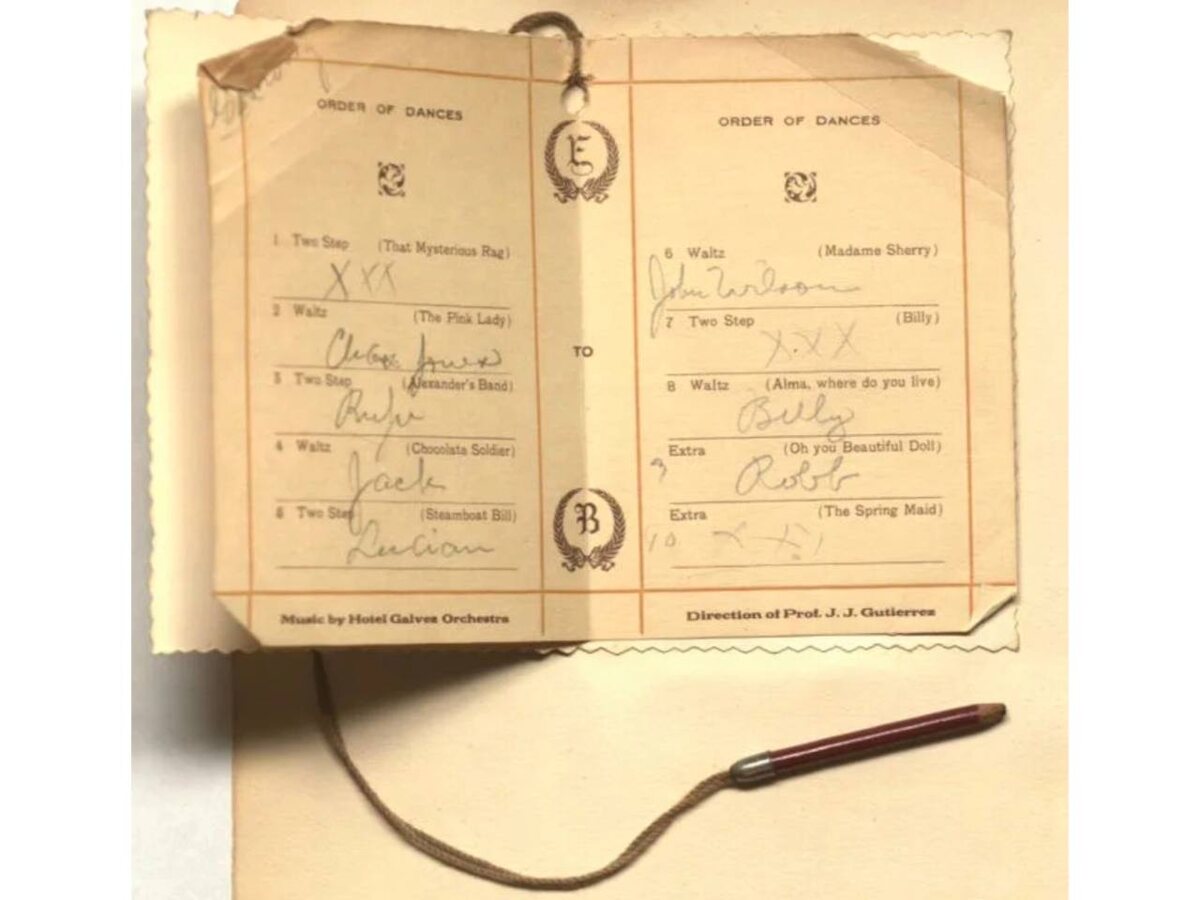 ORDER OF DANCES
1 Two Step (That Mysterious Rag)
XXX
2 Waltz (The Pink Lady)
Jones
3 Two Step (Alexander's Band)
Rufe
4 Waltz (Chocolate Soldier)
Jack
5 Two Step (Steamboat Bill)
Lucian
Music by Hotel Galvez Orchestra
E
TO
B
ORDER OF DANCES
6 Waltz (Madame Sherry)
John Wilson
7 Two Step (Billy)
X.XX
8 Waltz (Alma, where do you live)
Billy
Extra (Oh you Beautiful Doll)
9 Robb
Extra (The Spring Maid)
10
Direction of Prof. J. J. Gutierrez